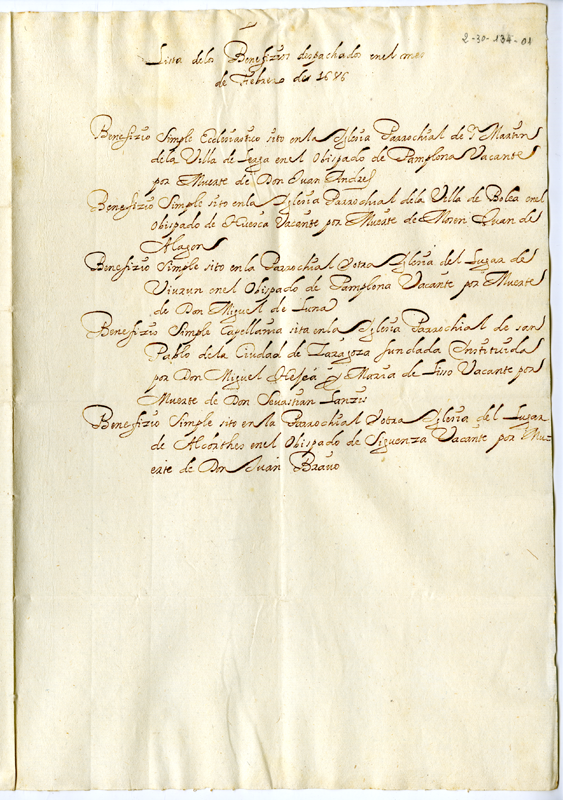 2-30-134-01
Lista delos Benefizios despachados en el mes
de Febrero de 1676
Benefizio Simple Ecclesiastico sito en la Iglesia Parrochial de Sn Martin
de la Villa de en el Obispado de Pamplona Vacante
por Muerte de Don Juan Andres
Benefizio Simple sito en la Iglesia Parrochial dela Villa de Bolea en el
Obispado de Huesca Vacante por Muerte de Mosen Juan de
Alagon
Benefizio Simple sito en la Parrochial Iglesia del Lugar de
en el Obispado de Pamplona Vacante por Muerte
de Don Miguel de Luna
Benefizio Simple Capellania sita en la Iglesia Parrochial de san
Pablo de la Ciudad de Zaragoza fundada Instituida
por Don Miguel y Maria de Liso Vacante por
Muerte de Don Sevastian Lanzis
Benefizio Simple sito en la Parrochial Iglesia del Lugar
de Alcorthes en el Obispado de Siguenza Vacante por Mu-
erte de Don Juan Bravo